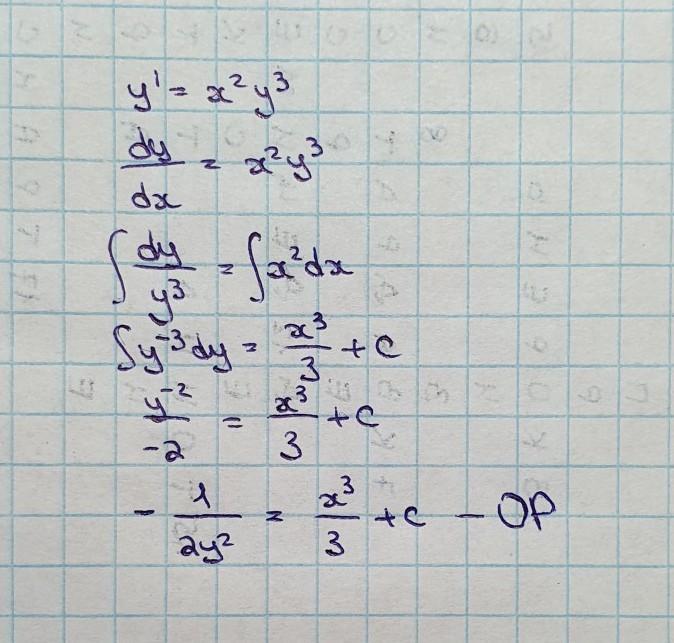 y' = x²y³
dy/dx = x²y³
∫ dy/y³ = ∫ x²dx
∫ y⁻³ dy = x³/3 + C
y⁻²/-2 = x³/3 + C
- 1/2y² = x³/3 + C - ОР